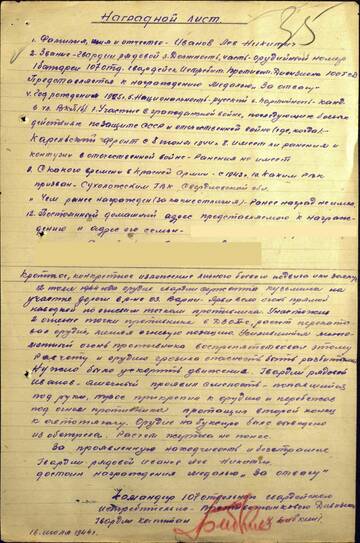 35
Наградной лист.
1. Фамилия, имя и отчество - Иванов Лев Никитич
2. Звание - гвардии рядовой 3. Должность, часть - орудийный номер
1 батареи 107 отд. гвардейск. Истребит. Противот. Дивизиона
Представляется к награждению Медалью „За отвагу“
4. Год рождения - 1925 г. 5. Национальность - русский 6. Партийность - канд.
7. Участие в гражданской войне, последующие боевые
действия по защите СССР и отечественной войне (где, когда) -
Карельский фронт с июня 1944 г. 8. имеет ли ранения и
контузии в отечественной войне - Ранения не имеет
9. С какого времени в Красной Армии - с 1943 г. 10. Каким РВК
призван - Сухоложским РВК Свердловской обл.
11. Чем ранее награжден (за какие отличия) - Ранее наград не имел.
12. Постоянный домашний адрес представляемого к награж-
дению и адрес его семьи -
Краткое, конкретное изложение личного боевого подвига или заслуг
июля 1944 года орудие гвардии сержанта Кузьмина на
участке дороги вел огонь прямой
наводкой по огневым точкам противника. Уничтожив
2 огневые точки противника расчет перекаты-
вал орудие, меняя огневую позицию. Усилившийся мино-
метный огонь противника воспрепятствовал этому
Расчету и орудию грозила опасность быть разбитыми
Нужно было ускорить движения. Гвардии рядовой
Иванов проявил смелость -
под руки, трос прикрепил к орудию и перебегая
под огнем противника протащил второй конец
к автотягачу. Орудие на буксире было выведено
из обстрела. Расчет жертв не понес.
За проявленную находчивость и бесстрашие
Гвардии рядовой Иванов Лев Никитич
достоин награждения медалью „За отвагу“
Командир 107 отдельного гвардейского
истребительно-противотанкового Дивизиона
Гвардии капитан
16 июля 1944 г.